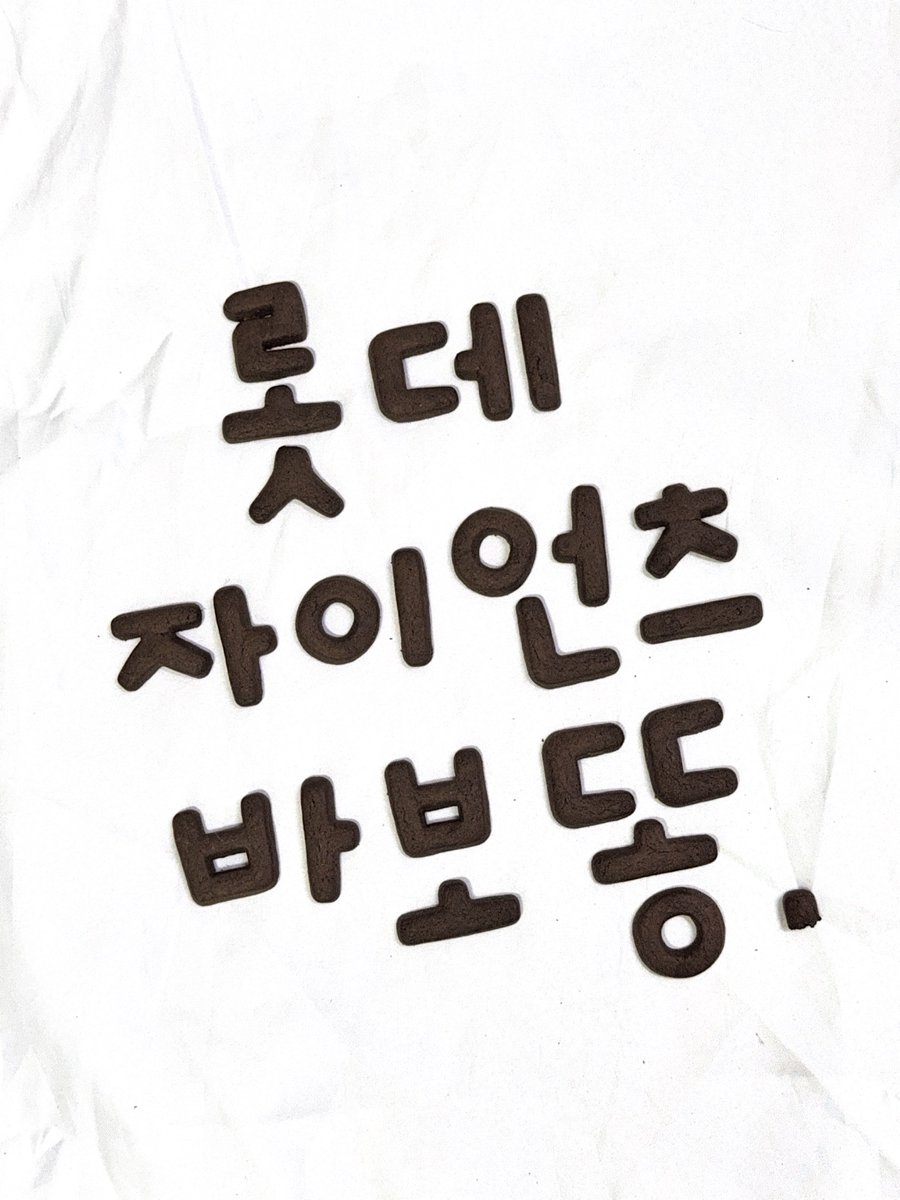 롯데
자이언츠
바보똥.